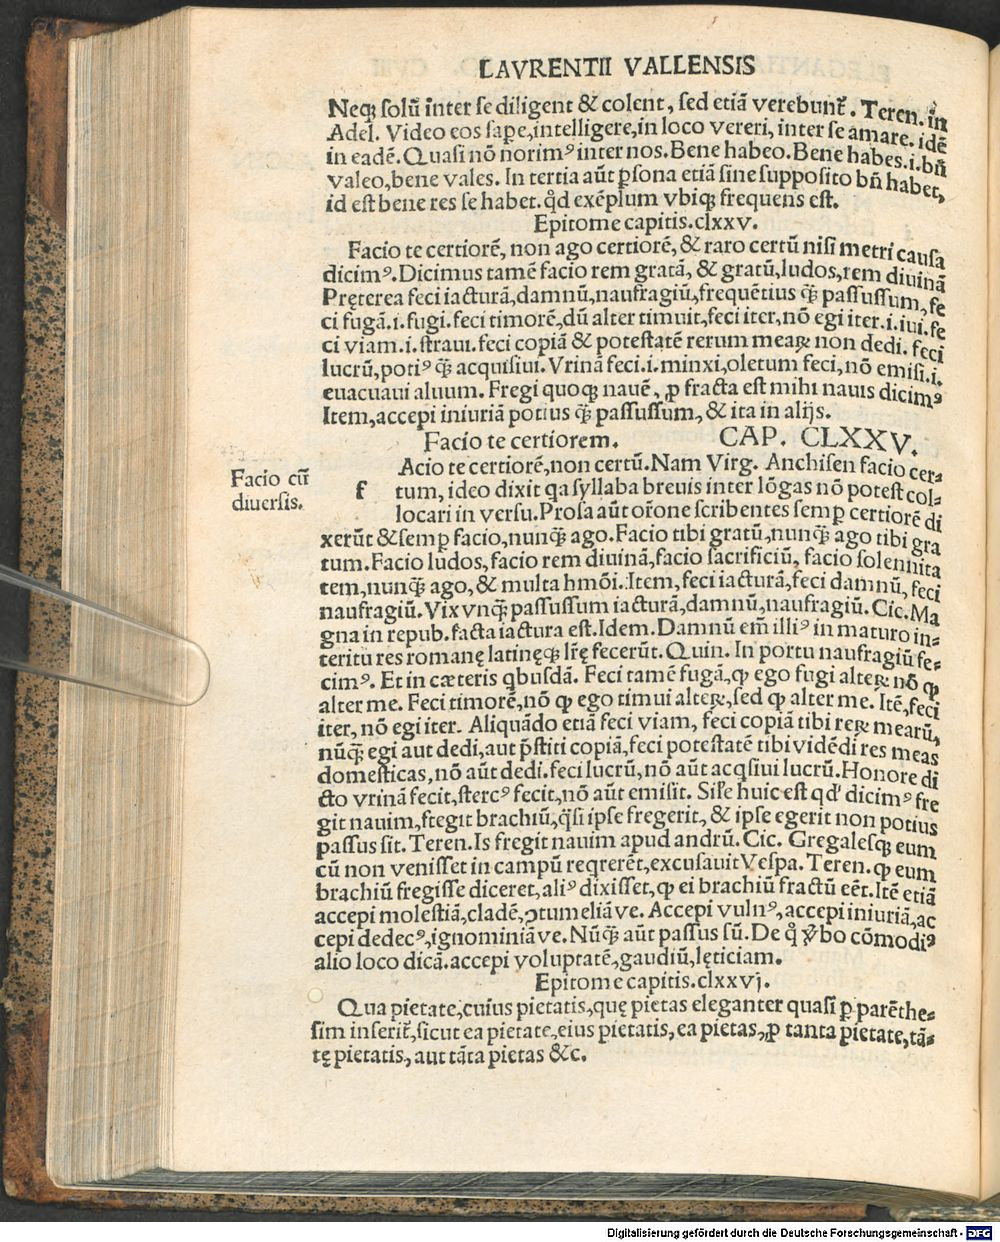 LAVRENTII VALLENSIS
Neqꝫ solū inter se diligent & colent, sed etiā verebunt᷑. Teren. in
Adel. Video eos sape, intelligere, in loco vereri, inter se amare. idē
in eadē. Quasi nō norimꝰ inter nos. Bene habeo. Bene habes .i. bñ
valeo, bene vales. In tertia aūt ꝑsona etiā sine supposito bñ habet,
id est bene res se habet. qd̓ exēplum vbiqꝫ frequens est.
Epitome capitis .clxxv.
Facio te certiorē, non ago certiorē, & raro certū nisi metri causa
dicimꝰ. Dicimus tamē facio rem gratā, & gratū, ludos, rem diuinā
Pręterea feci iacturā, damnū, naufragiū, frequētius q̄ꝫ passus sum, fe
ci fugā .i. fugi. feci timorē, dū alter timuit, feci iter, nō egi iter .i. iui. fe
ci viam .i. straui. feci copiā & potestatē rerum meaꝝ non dedi. feci
lucrū, potiꝰ q̄ꝫ acquisiui. Vrinā feci .i. minxi, oletum feci, nō emisi .i.
euacuaui aluum. Fregi quoqꝫ nauē, ꝓ fracta est mihi nauis dicimꝰ
Item, accepi iniuriā potius q̄ꝫ passus sum, & ita in alijs.
Facio te certiorem. CAP. CLXXV.
Facio cū
diuersis.
f Acio te certiorē, non certū. Nam Virg. Anchisen facio cer-
tum, ideo dixit qa syllaba breuis inter lōgas nō potest col-
locari in versu. Prosa aūt or̄one scribentes semꝑ certiorē di
xerūt & semꝑ facio, nunq̄ꝫ ago. Facio tibi gratū, nunq̄ꝫ ago tibi gra
tum. Facio ludos, facio rem diuinā, facio sacrificiū, facio solennita
tem, nunq̄ꝫ ago, & multa hmōi. Item, feci iacturā, feci damnū, feci
naufragiū. Vix vnq̄ꝫ passus sum iacturā, damnū, naufragiū. Cic. Ma
gna in repub. facta iactura est. Idem. Damnū em̄ illiꝰ in maturo in-
teritu res romanę latinęqꝫ lr̄ę fecerūt. Quin. In portu naufragiū fe-
cimꝰ. Et in cæteris qbusdā. Feci tamē fugā, ꝙ ego fugi alteꝝ nō ꝙ
alter me. Feci timorē, nō ꝙ ego timui alteꝝ, sed ꝙ alter me. Itē, feci
iter, nō egi iter. Aliquādo etiā feci viam, feci copiā tibi reꝝ mearū,
nūq̄ꝫ egi aut dedi, aut p̄stiti copiā, feci potestatē tibi vidēdi res meas
domesticas, nō aūt dedi. feci lucrū, nō aūt acqsiui lucrū. Honore di
cto vrinā fecit, stercꝰ fecit, nō aūt emisit. Sil̓e huic est qd̓ dicimꝰ fre
git nauim, fregit brachiū, q̄si ipse fregerit, & ipse egerit non potius
passus sit. Teren. Is fregit nauim apud andrū. Cic. Gregalesqꝫ eum
cū non venisset in campū reqrerēt, excusauit Vespa. Teren. ꝙ eum
brachiū fregisse diceret, aliꝰ dixisset, ꝙ ei brachiū fractū eēt. Itē etiā
accepi molestiā, cladē, ꝯtumeliā ve. Accepi vulnꝰ, accepi iniuriā, ac
cepi dedecꝰ, ignominiā ve. Nūq̄ꝫ aūt passus sū. De q̊ v̓bo cōmodiꝰ
alio loco dicā. accepi voluptatē, gaudiū, lęticiam.
Epitome capitis .clxxvj.
Qua pietate, cuius pietatis, quę pietas eleganter quasi ꝑ parēthe-
sim inserit᷑, sicut ea pietate, eius pietatis, ea pietas, ꝓ tanta pietate, tā-
tę pietatis, aut tāta pietas &c.
Digitalisierung gefördert durch die Deutsche Forschungsgemeinschaft - DFG